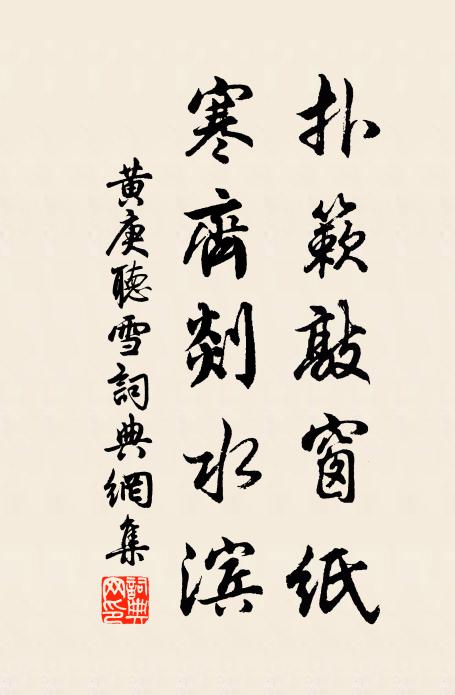 扑簌敲窗紙
寒齊剡水滨
黄庚聽雪詞典網集
詞典网印